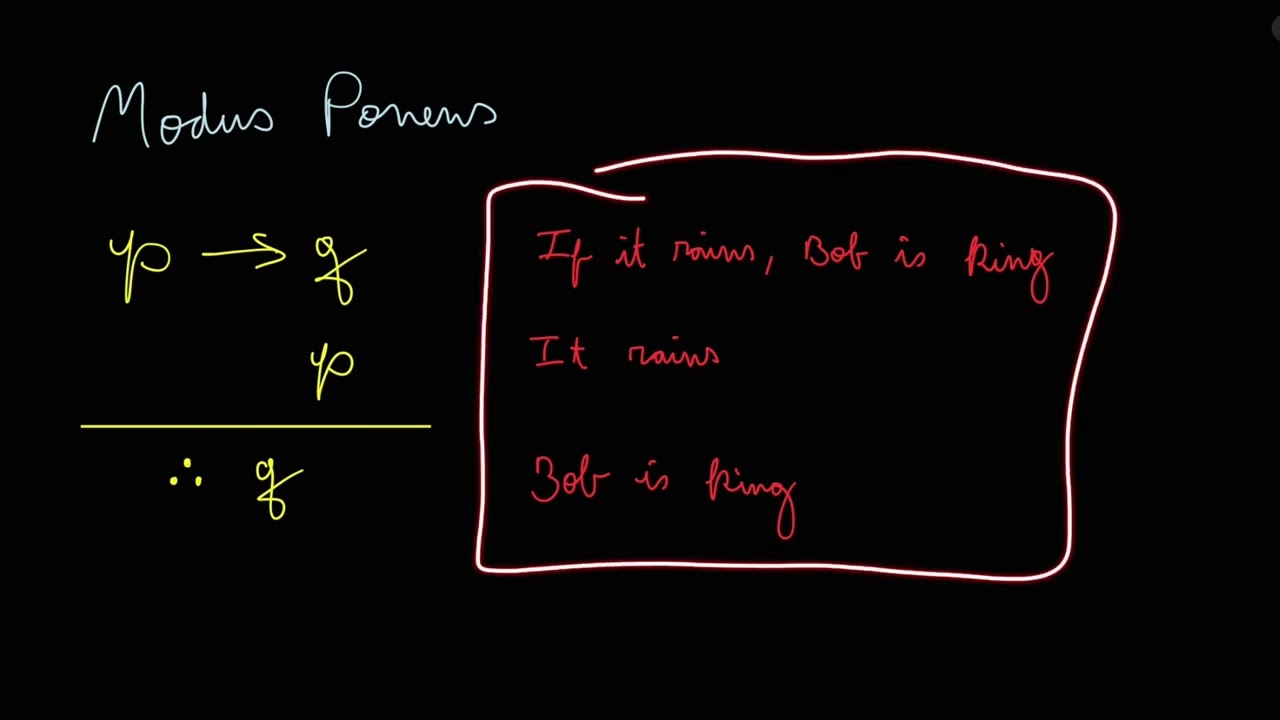 Modus Ponens
p → q
p
∴ q
If it rains, Bob is king
It rains
Bob is king